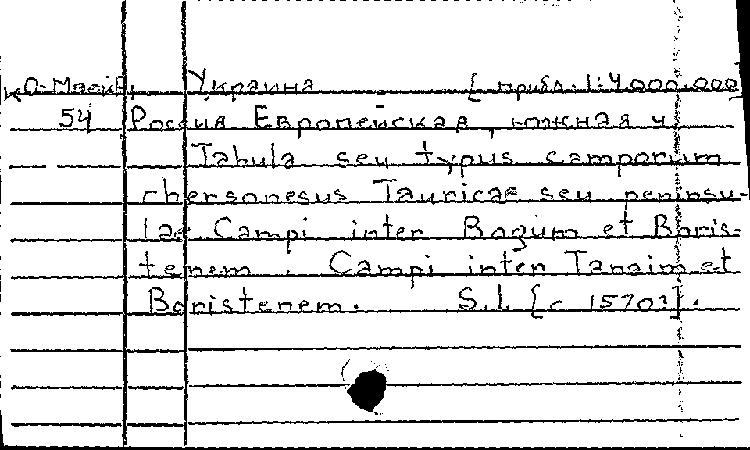 Украина [прибл. 1:4000.000
54 Россия Европейская, южная ч.
Tabula seu typus camporum
chersonesus Tauricae seu peninsu-
lae Campi inter Bogum et Boris-
tenem. Campi inter Tanaim et
Boristenem. S.l. [c 1570?].